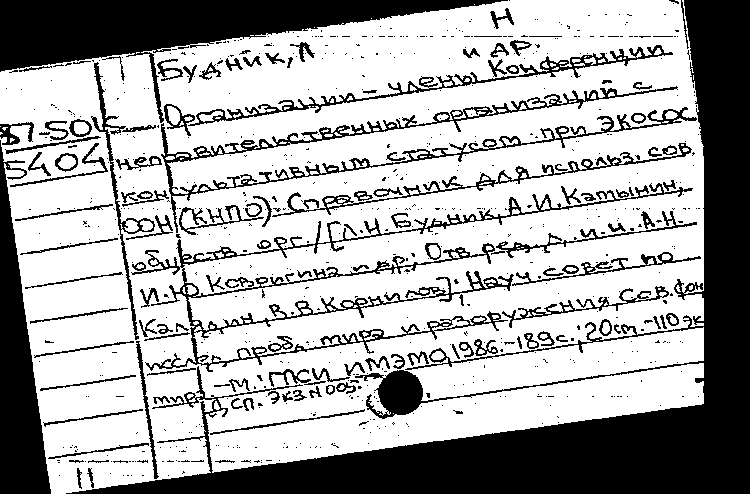 Н
Будник, Л
и др.
Организации - члены Конференции
87-50К
неправительственных организаций с
5404
консультативным статусом при ЭКОСОС
ООН (КНПО): Справочник для использ. сов.
обществ. орг. / [Л.Н. Будник, А.И. Катынин,
И.Ю. Ковригина и др.; Отв. ред. д. и. н. А.Н.
Калядин, В.В. Корнилов]; Науч. совет по
исслед. пробл. мира и разоружения, Сов. фон
мира - М.: ГПСИ ИМЭМО, 1986. - 189с.; 20см. - 110 эк
ДСП. Экз N 005.
11